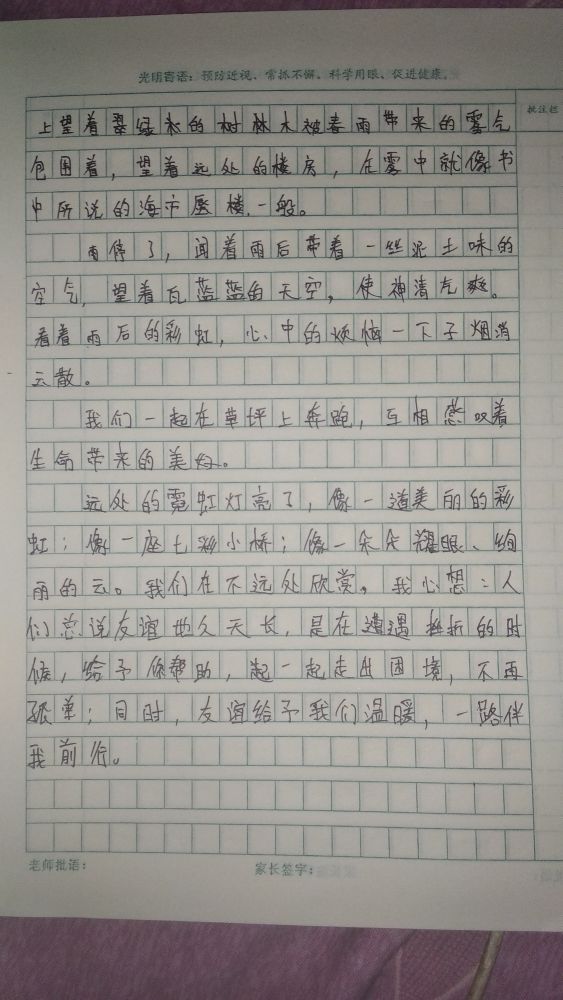 光明寄语：预防近视、常抓不懈、科学用眼、促进健康。
批注栏
上望着翠绿衣的树林木被春雨带来的雾气
包围着，望着远处的楼房，在雾中就像书
中所说的海市蜃楼一般。
雨停了，闻着雨后带着一丝泥土味的
空气，望着瓦蓝蓝的天空，使神清气爽。
看着雨后的彩虹，心中的烦恼一下子烟消
云散。
我们一起在草坪上奔跑，互相感叹着
生命带来的美好。
远处的霓虹灯亮了，像一道美丽的彩
虹；像一座七彩小桥；像一朵朵耀眼、绚
丽的云。我们在不远处欣赏。我心想：人
们总说友谊地久天长，是在遭遇挫折的时
候，给予你帮助，起一起走出困境，不再
孤单；同时，友谊给予我们温暖，一路伴
我前行。
老师批语：
家长签字：